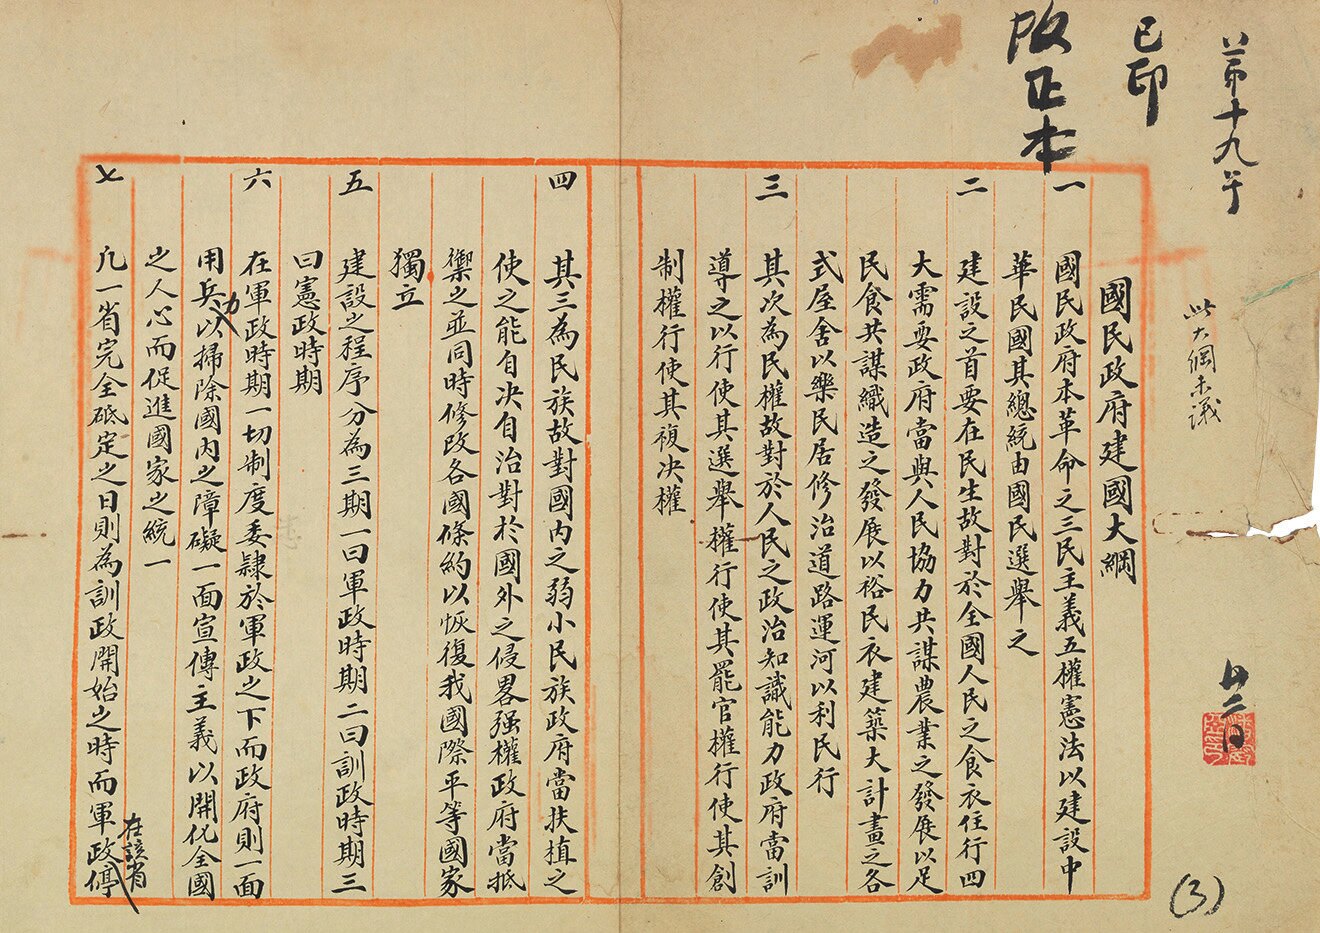 第十九号
已印
改正本
此大綱未議
廿三日
(3)
國民政府建國大綱
一 國民政府本革命之三民主義五權憲法以建設中
華民國其總統由國民選舉之
二 建設之首要在民生故對於全國人民之食衣住行四
大需要政府當與人民協力共謀農業之發展以足
民食共謀織造之發展以裕民衣建築大計畫之各
式屋舍以樂民居修治道路運河以利民行
三 其次為民權故對於人民之政治知識能力政府當訓
導之以行使其選舉權行使其罷官權行使其創
制權行使其複决權
四 其三為民族故對國內之弱小民族政府當扶植之
使之能自决自治對於國外之侵畧强權政府當抵
禦之並同時修改各國條約以恢復我國際平等國家
獨立
五 建設之程序分為三期一曰軍政時期二曰訓政時期三
曰憲政時期
六 在軍政時期一切制度委隸於軍政之下而政府則一面
用兵力以掃除國內之障礙一面宣傳主義以開化全國
之人心而促進國家之統一
七 凡一省完全砥定之日則為訓政開始之時而軍政停
在該省